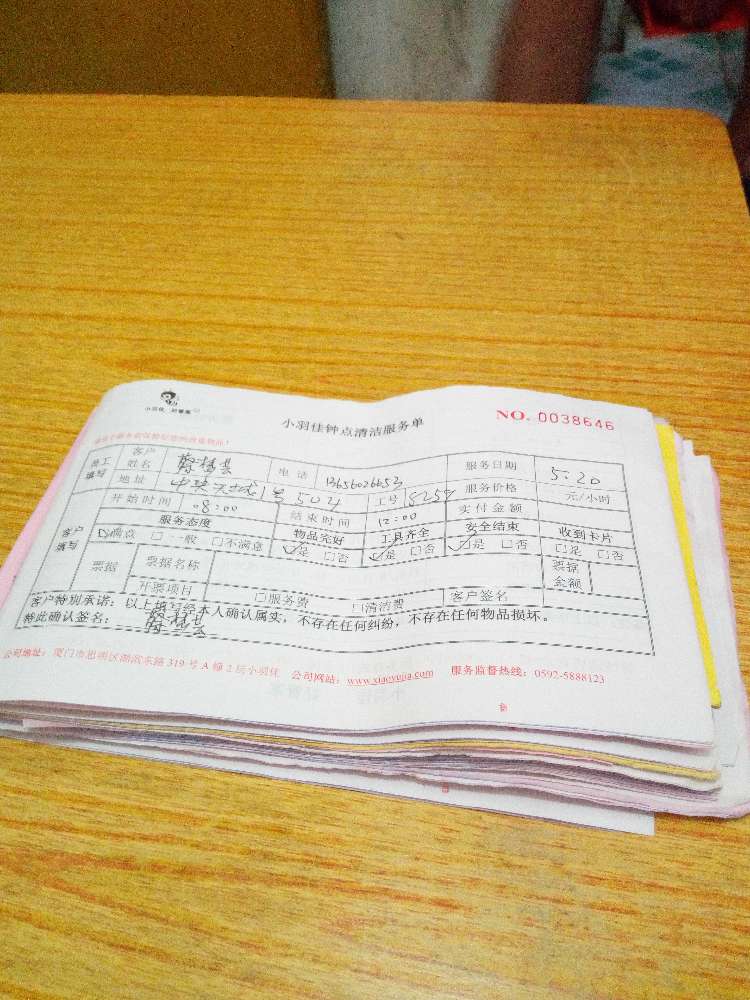 小羽佳，好管家
小羽佳钟点清洁服务单
NO. 0038646
员工填写 客户姓名 电话 13656026653 服务日期 5.20
地址 中央天城1号504 工号 服务价格 元/小时
客户填写 开始时间 08:00 结束时间 12:00 实付金额
服务态度 物品完好 工具齐全 安全结束 收到卡片
☑满点 □一般 □不满意 ☑是 □否 ☑是 □否 ☑是 □否 □是 □否
票据 票据名称 票据金额
开票项目 □服务费 □清洁费 客户签名
客户特别承诺：以上填写经本人确认属实，不存在任何纠纷，不存在任何物品损坏。
特此确认签名：
公司地址：厦门市思明区湖滨东路 319 号 A 幢 2 层小羽佳 公司网站：www.xiaoyujia.com 服务监督热线：0592-5888123